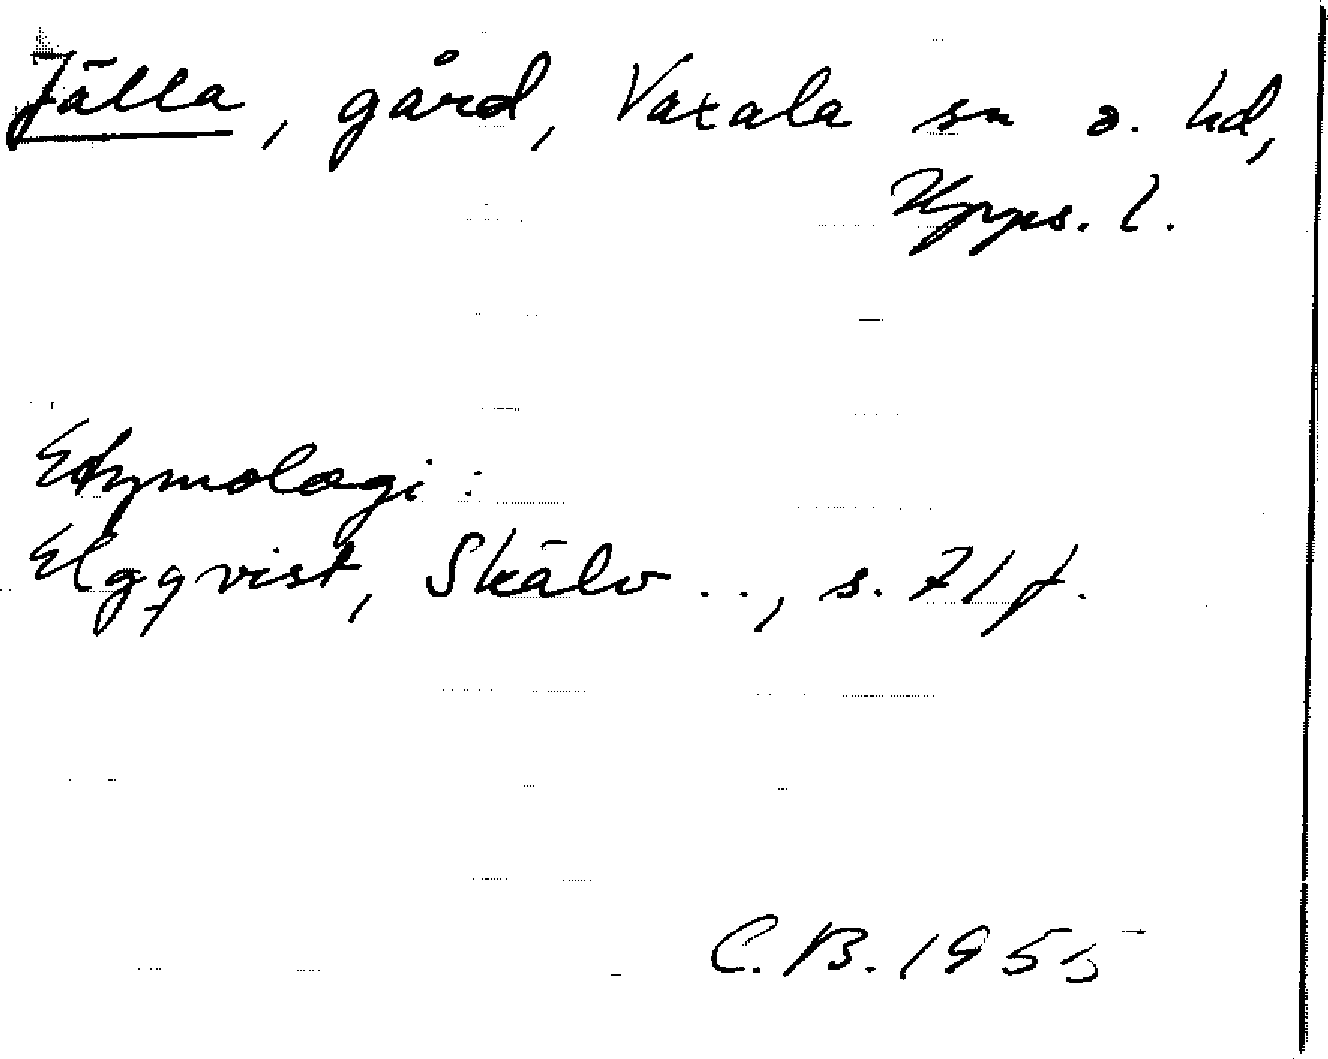 Jälla, gård, Vaxala sn o. hd,
Upps. l.
Etymologi:
Elgqvist, Skälv.., s. 71 f.
C.B. 1955